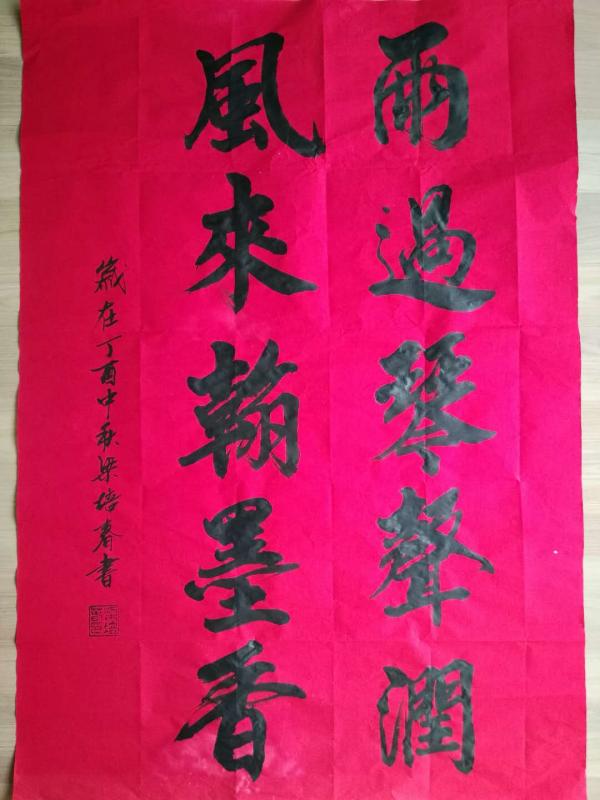 雨過琴聲潤
風來翰墨香
歲在丁酉中秋梁培春書